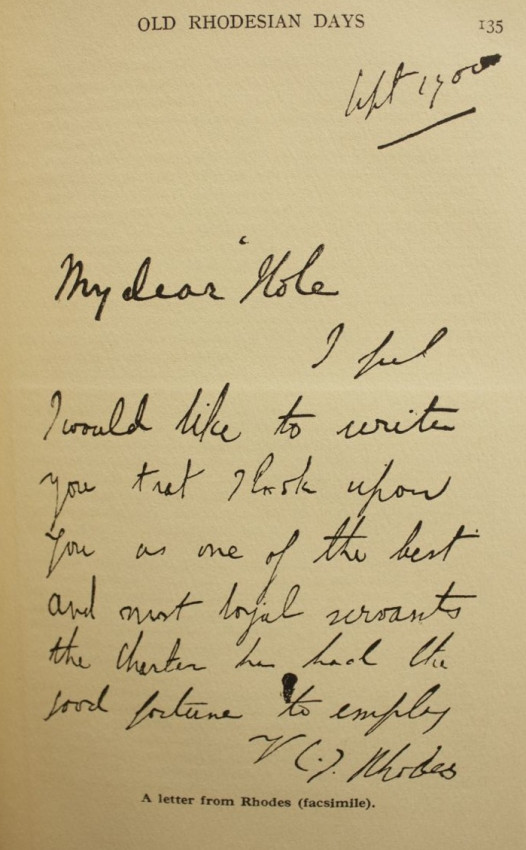 OLD RHODESIAN DAYS 135
Sept 1900
My dear Hole
I feel
I would like to write
you that I look upon
you as one of the best
and most loyal servants
the Charter has had the
good fortune to employ
C.J. Rhodes
A letter from Rhodes (facsimile).